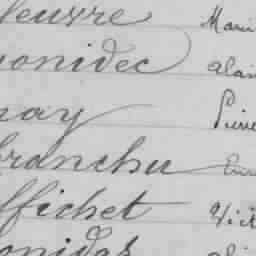 leuvre Mari
onidec Alain
nay Pierre
branchu
ffichet Vict
onidas